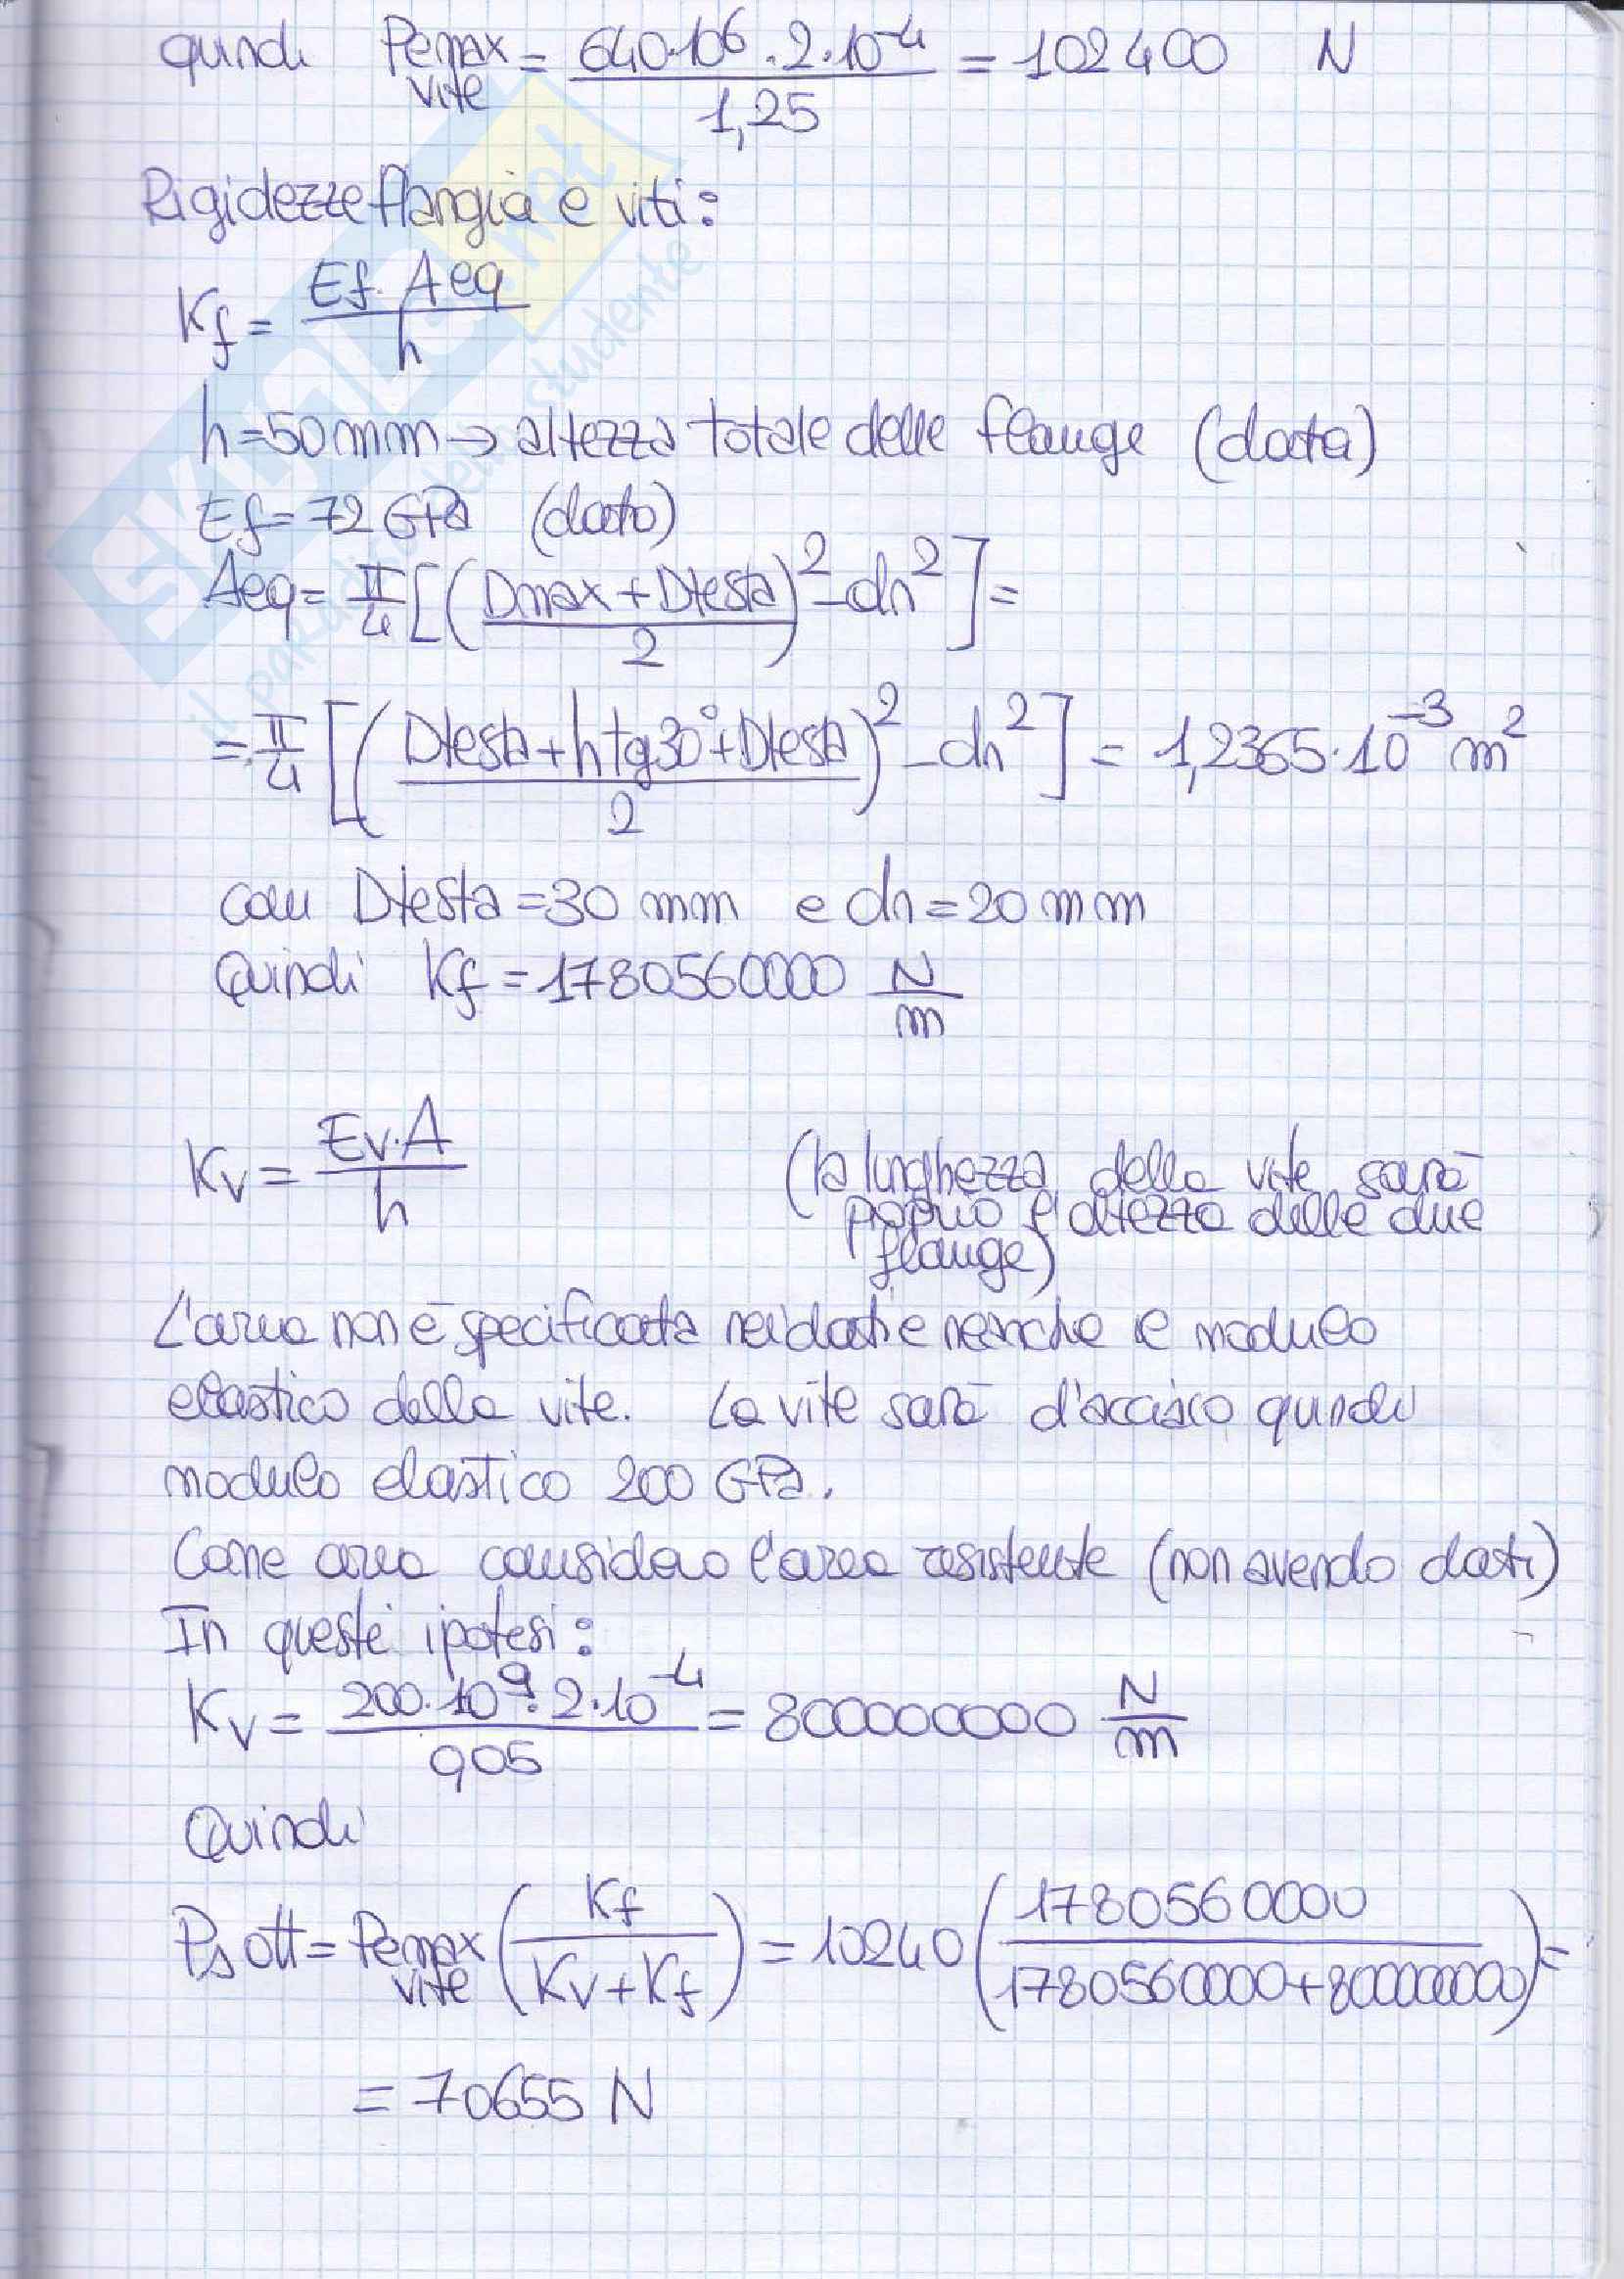 quindi Pemax vite = 640·10⁶ · 2·10⁻⁴ / 1,25 = 102400 N
Rigidezze flangia e viti:
Kf = Ef · Aeq / h
h=50mm → altezza totale delle flange (data)
Ef=72 GPa (dato)
Aeq = π/4 [((Dmax + Dtesta)/2)² - dn²] =
= π/4 [((Dtesta + h tg30° + Dtesta)/2)² - dn²] = 1,2365·10⁻³ m²
con Dtesta = 30 mm e dn = 20 mm
Quindi Kf = 1780560000 N/m
Kv = Ev·A / h (la lunghezza della vite sarà
proprio l'altezza delle due
flange)
L'area non è specificata nei dati e neanche il modulo
elastico della vite. La vite sarà d'acciaio quindi
modulo elastico 200 GPa.
Come area considero l'area resistente (non avendo dati)
In queste ipotesi:
Kv = 200·10⁹ · 2·10⁻⁴ / 0,05 = 800000000 N/m
Quindi
Ps ott = Pemax vite (Kf / (Kv + Kf)) = 10240 (1780560000 / (1780560000+800000000)) =
= 70655 N
SKUOLA.net
il paradiso dello studente